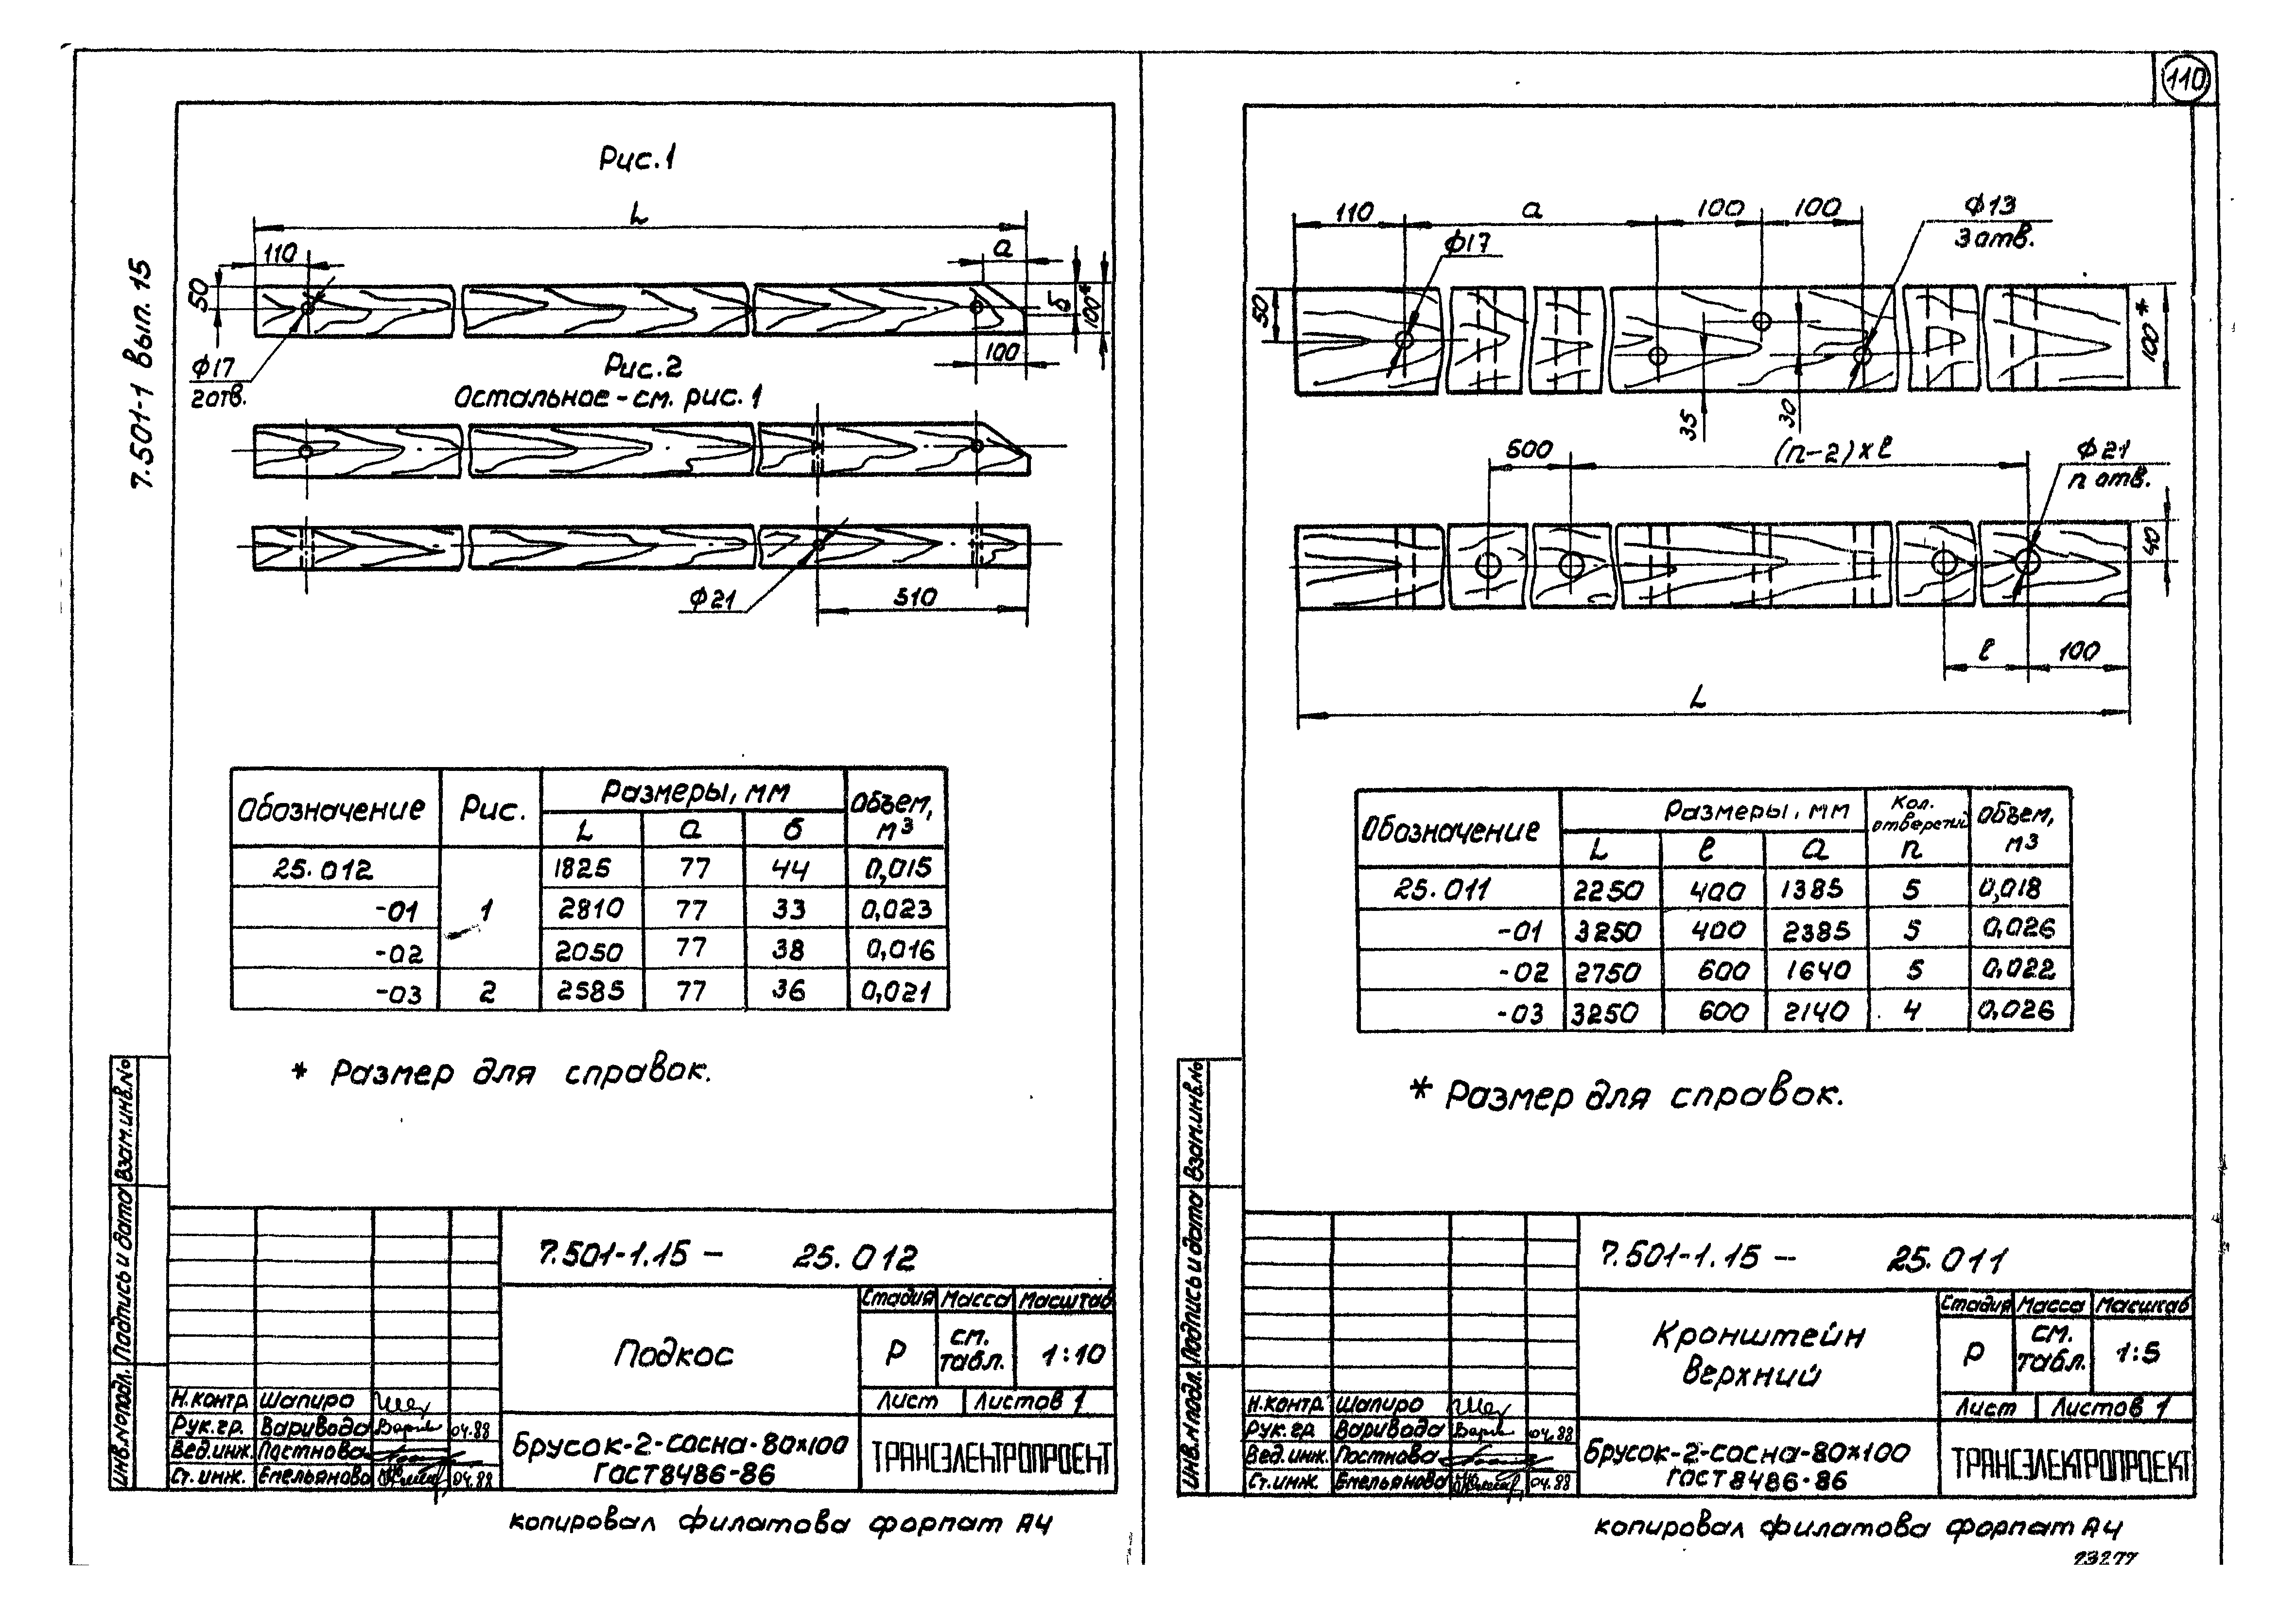 110
7.501-1 вып. 15
Рис.1
L
110
а
50
б
100*
Ф17
2отв.
100
Рис.2
Остальное-см. рис.1
Ф21
510
Обозначение Рис. Размеры, мм Объем, м3
L а б
25.012 1825 77 44 0,015
-01 1 2810 77 33 0,023
-02 2050 77 38 0,016
-03 2 2585 77 36 0,021
* Размер для справок.
Инв.№подл. Подпись и дата Взам.инв.№
7.501-1.15 - 25.012
Подкос
Стадия Масса Масштаб
Р см. табл. 1:10
Лист Листов 1
Н.контр Шапиро
Рук.гр. Варивода 04.88
Вед.инж. Постнова
Ст.инж. Емельянова 04.88
Брусок-2-сосна-80х100
ГОСТ8486-86
ТРАНСЭЛЕКТРОПРОЕКТ
копировал филатова формат А4
110 а 100 100 Ф13
3отв.
Ф17
50
100*
35
30
500 (n-2)xℓ Ф21
n отв.
40
ℓ 100
L
Обозначение Размеры, мм Кол. отверстий Объем, м3
L ℓ а n
25.011 2250 400 1385 5 0,018
-01 3250 400 2385 5 0,026
-02 2750 600 1640 5 0,022
-03 3250 600 2140 4 0,026
* Размер для справок.
Инв.№подл. Подпись и дата Взам.инв.№
7.501-1.15 - 25.011
Кронштейн
верхний
Стадия Масса Масштаб
Р см. табл. 1:5
Лист Листов 1
Н.контр. Шапиро
Рук.гр Варивода 04.88
Вед.инж. Постнова
Ст.инж. Емельянова 04.88
Брусок-2-сосна-80х100
ГОСТ8486-86
ТРАНСЭЛЕКТРОПРОЕКТ
копировал филатова формат А4
23277